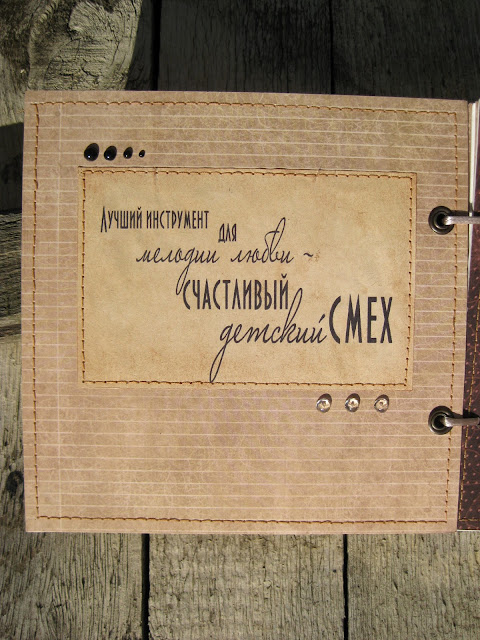 Лучший инструмент для
мелодии любви ~
счастливый
детский смех